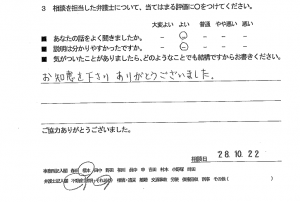 3 相談を担当した弁護士について、当てはまる評価に○をつけてください。
大変よい よい 普通 やや悪い 悪い
■ あなたの話をよく聞きましたか。
■ 説明は分かりやすかったですか。
■ 気がついたことがありましたら、どのようなことでも結構ですからお書きください。
お知恵を下さり ありがとうございました。
ご協力ありがとうございました。
相談日 28.10.22